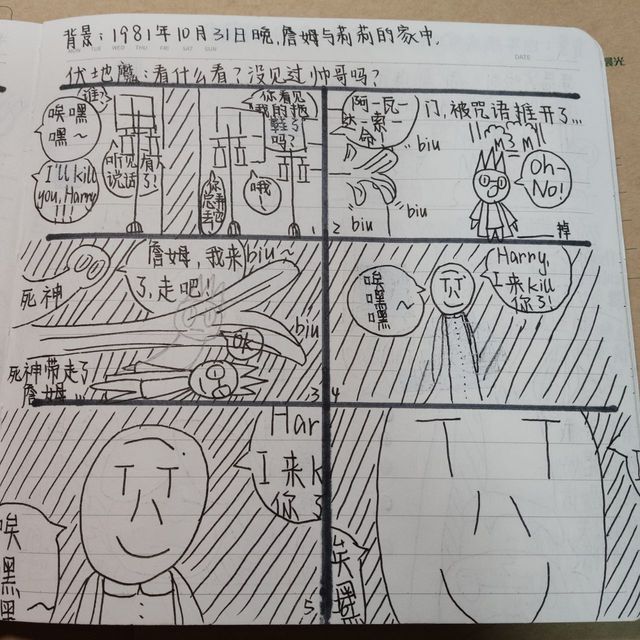 背景:1981年10月31日晚,詹姆与莉莉的家中.
TUE WED THU FRI SAT SUN
DATE
晨光
伏地魔:看什么看?没见过帅哥吗?
唉嘿
嘿~
I'll kill
you, Harry
!!!
谁?
听见有
说话了!
你看见
我的拖
鞋了
吗?
哦!
1
阿一瓦一
达一索
命!
biu
biu
biu
门,被咒语推开了...
Oh-
No!
掉
2
死神
詹姆,我来
了,走吧!
biu~
biu
OK
死神带走了
詹姆...
3
唉
嘿
嘿~
Harry,
I来kill
你了!
4
唉
嘿
嘿~
Har
I来k
你了
5
唉
嘿